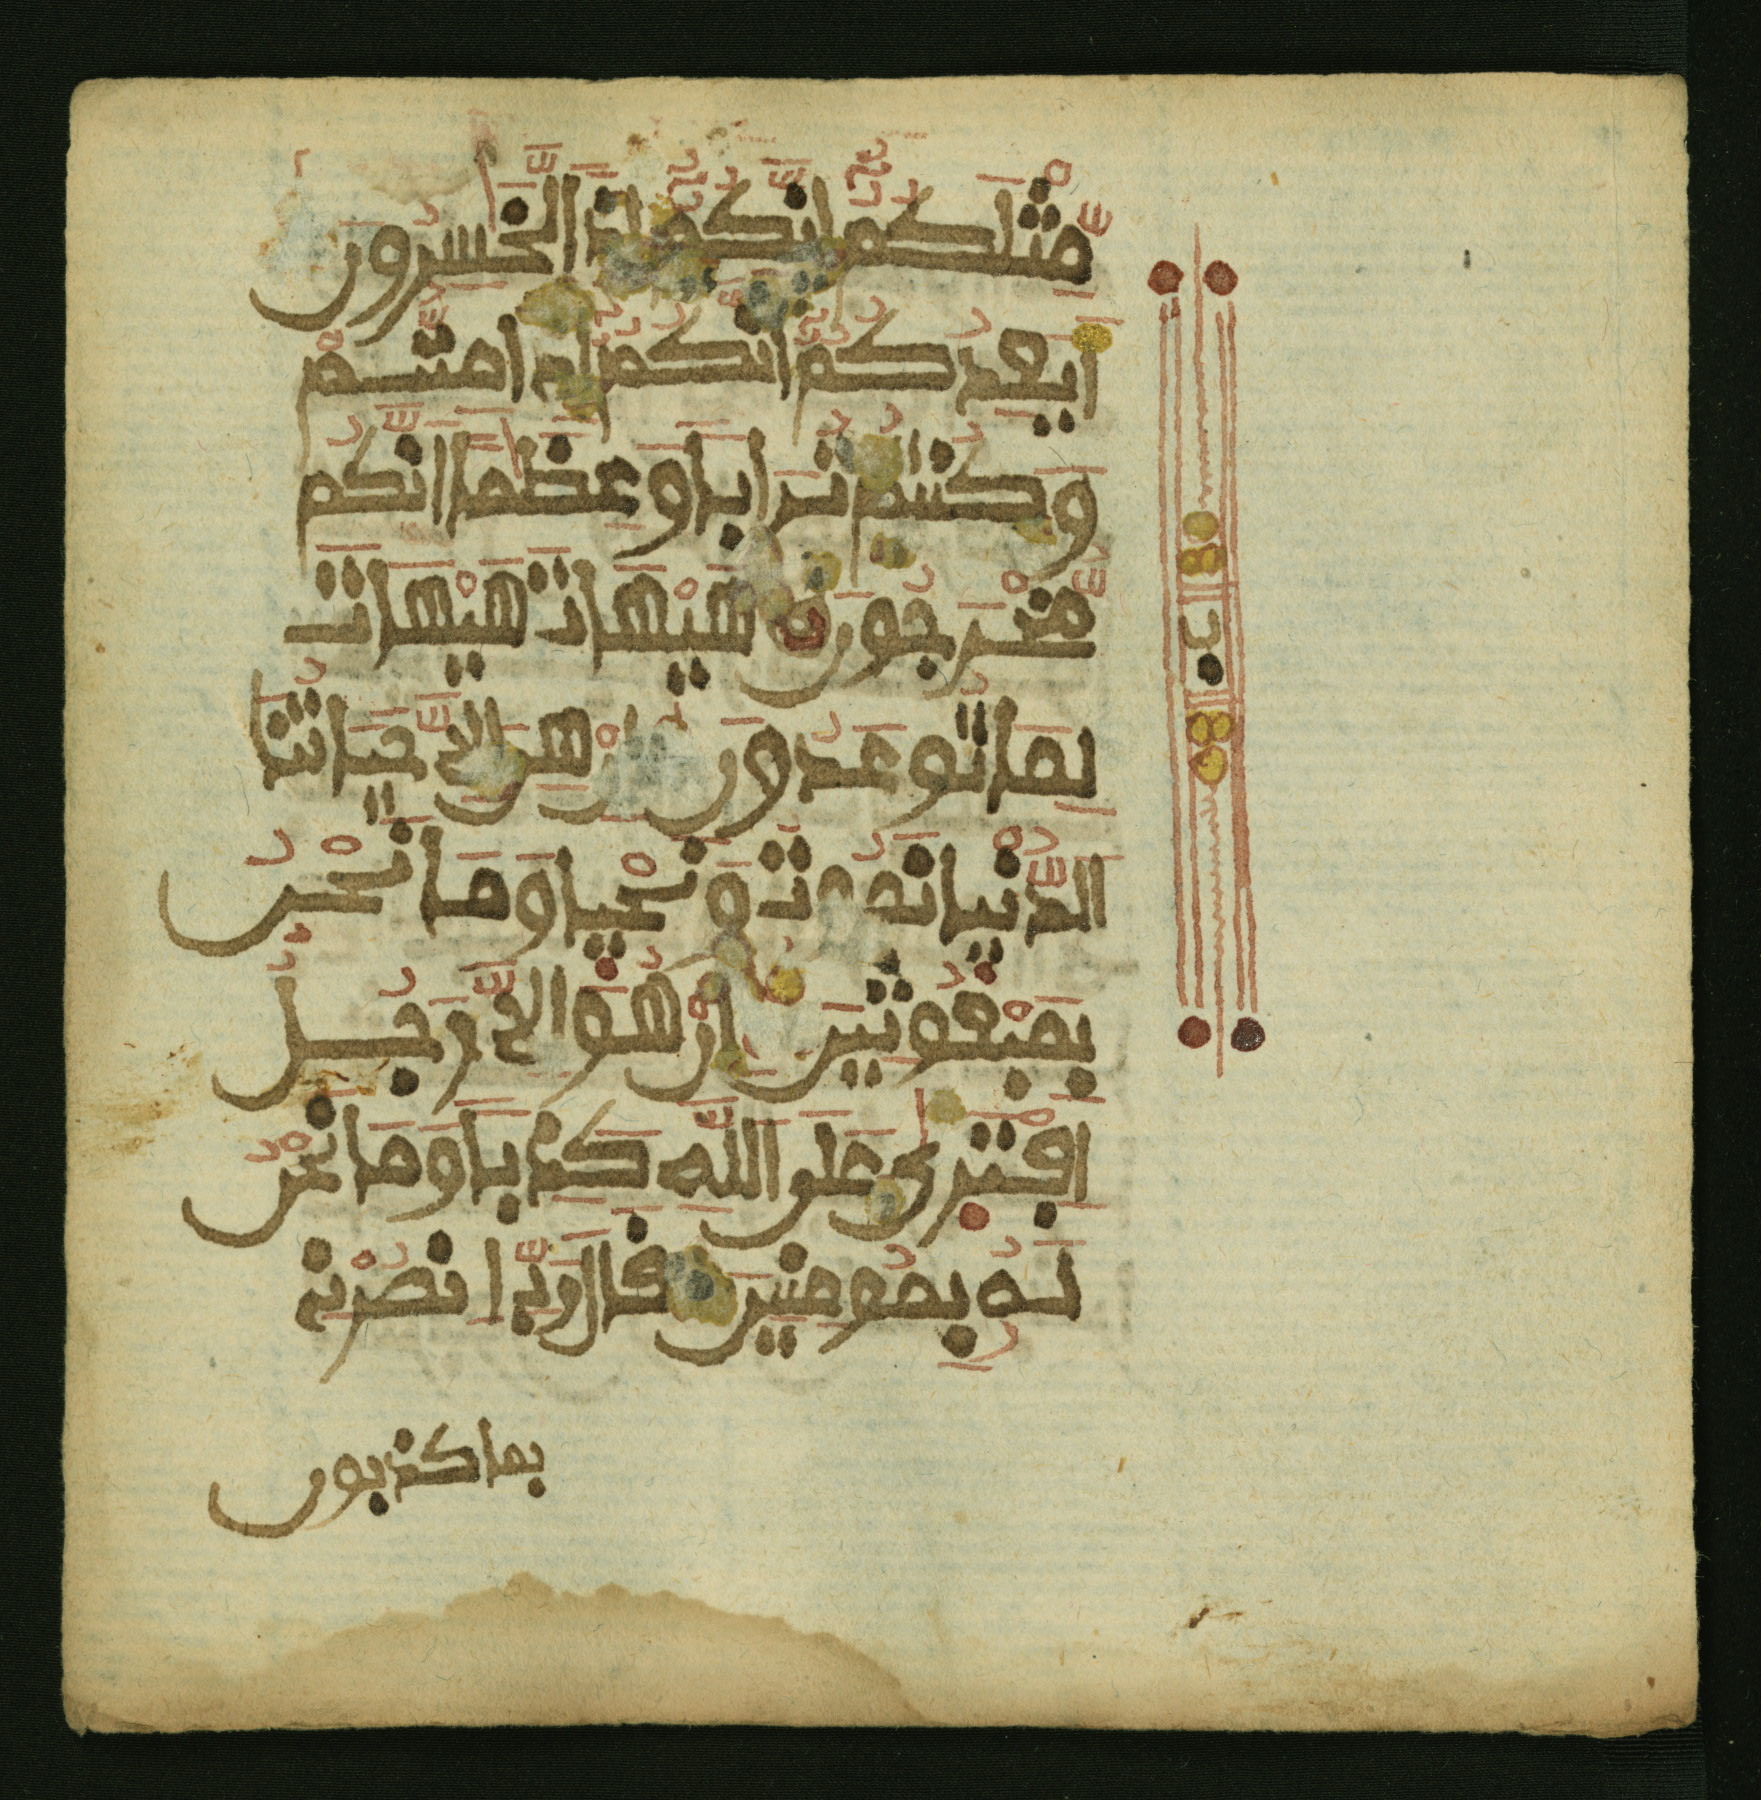 مثلكم انكم اذا الخسرون
ايعدكم انكم اذا متم
وكنتم ترابا وعظما انكم
مخرجون هيهات هيهات
لما توعدون ان هى الا حياتنا
الدنيا نموت ونحيا وما نحن
بمبعوثين ان هو الا رجل
افترى على الله كذبا وما نحن
له بمومنين قال رب انصرنى
بما كذبون
ب